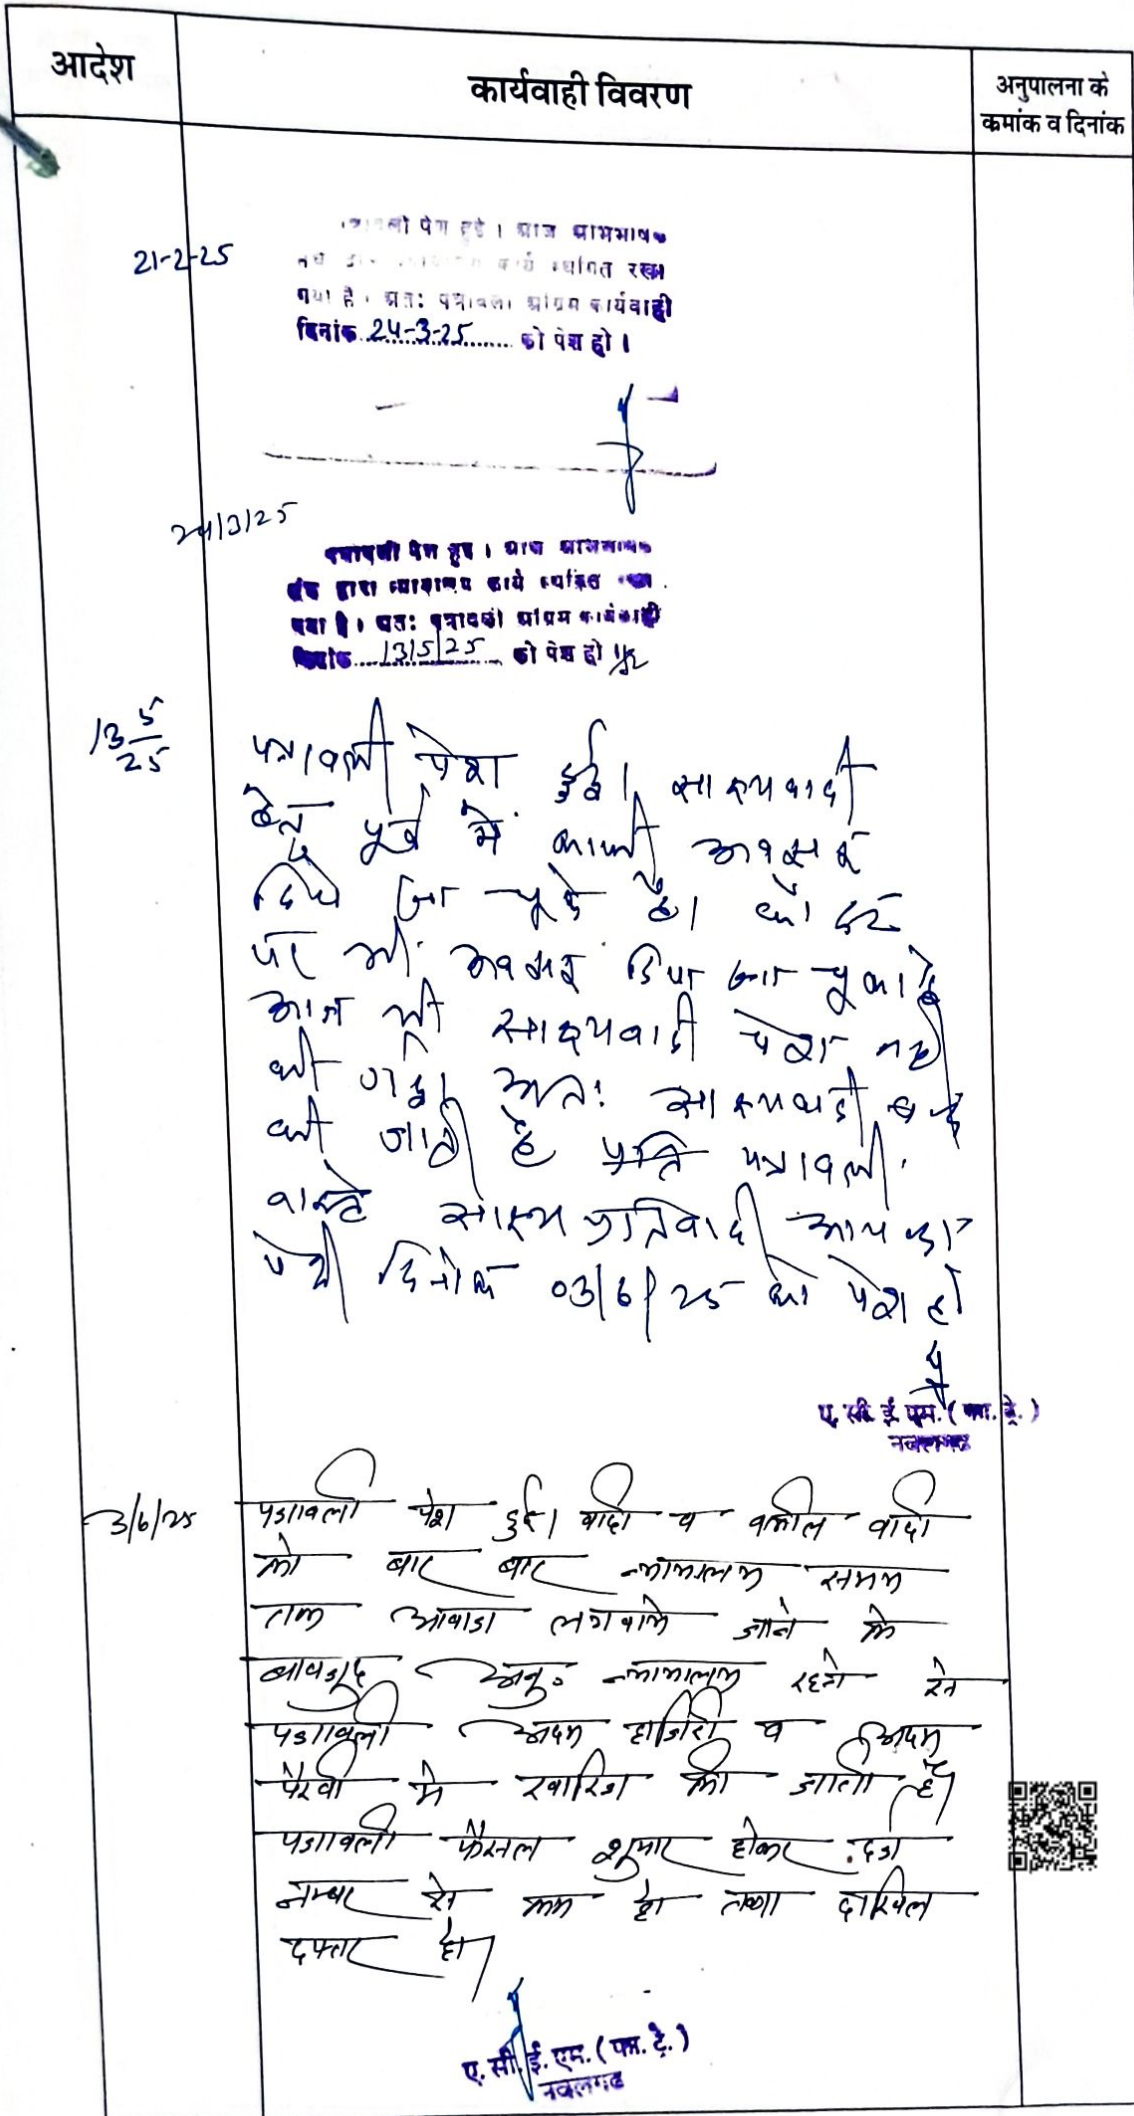 आदेश
कार्यवाही विवरण
अनुपालना के
क्रमांक व दिनांक
21-2-25
पेश हुई । आज
कार्य स्थगित रखा
गया है । अतः पत्रावली अग्रिम कार्यवाही
दिनांक 24-3-25 को पेश हो ।
24/3/25
पत्रावली पेश हुई । आज अभिभाषक
संघ द्वारा न्यायालय कार्य स्थगित रखा
गया है । अतः पत्रावली अग्रिम कार्यवाही
दिनांक 13/5/25 को पेश हो
13/5/25
पत्रावली पेश हुई। साक्ष्यवादी
हेतु पूर्व में काफी अवसर
दिये जा चूके है।
पर भी अवसर दिया जा चूका है
आज भी साक्ष्यवादी पेश नही
की गई। अतः साक्ष्यवादी बन्द
की जाती है पत्रावली
वास्ते साक्ष्य प्रतिवादी
पेशी दिनांक 03/6/25 को पेश हो
ए. सी. ई. एम. ( फा. ट्रे. )
नवलगढ
3/6/25
पत्रावली पेश हुई। वादी व वकील वादी
को बार बार न्यायालय समय
तक आवाज लगवाये जाने के
बावजूद अनु॰ न्यायालय रहने से
पत्रावली अदम हाजिरी व अदम
पैरवी मे खारिज की जाती है।
पत्रावली फैसल शुमार होकर दर्ज
नम्बर से कम हो तथा दाखिल
दफ्तर हो।
ए. सी. ई. एम. ( फा. ट्रे. )
नवलगढ